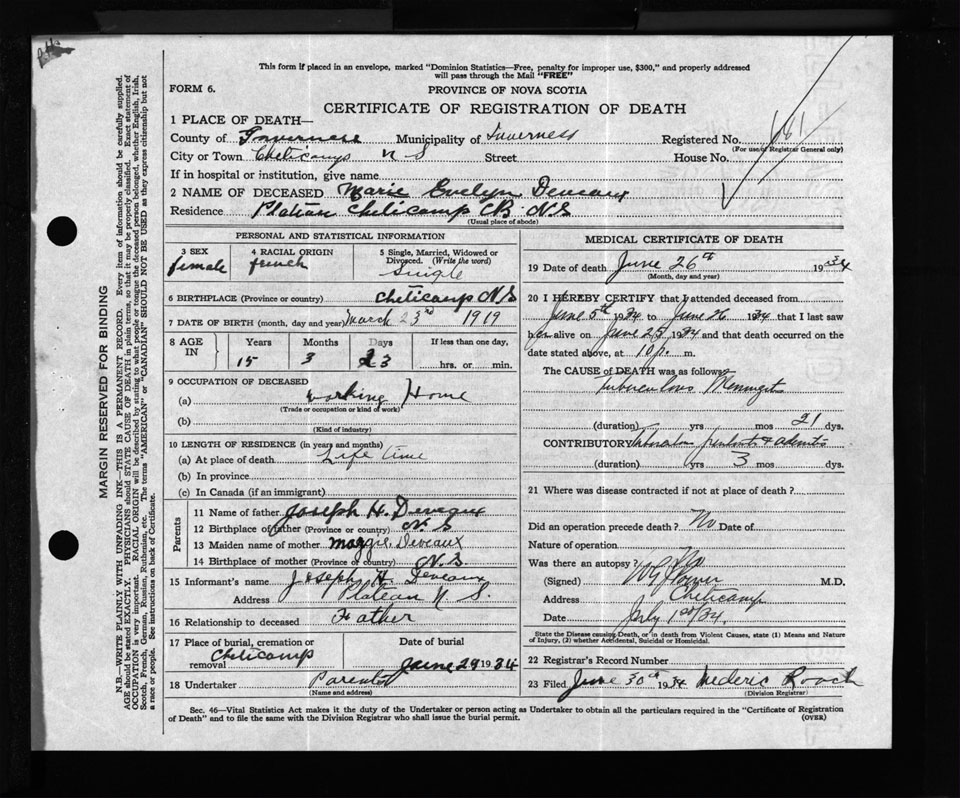 This form if placed in an envelope, marked "Dominion Statistics—Free, penalty for improper use, $300," and properly addressed
will pass through the Mail "FREE"
FORM 6.
PROVINCE OF NOVA SCOTIA
CERTIFICATE OF REGISTRATION OF DEATH
1 PLACE OF DEATH—
County of Inverness Municipality of Inverness Registered No.
(For use of Registrar General only)
City or Town Cheticamp N S Street House No.
If in hospital or institution, give name
2 NAME OF DECEASED Marie Evelyn Deveaux
Residence Plateau Cheticamp CB. N.S
(Usual place of abode)
PERSONAL AND STATISTICAL INFORMATION
3 SEX female
4 RACIAL ORIGIN french
5 Single, Married, Widowed or Divorced. (Write the word) Single
6 BIRTHPLACE (Province or country) Cheticamp N.S
7 DATE OF BIRTH (month, day and year) March 23rd 1919
8 AGE IN
Years Months Days If less than one day,
15 3 23 hrs. or min.
9 OCCUPATION OF DECEASED
(a) working Home
(Trade or occupation or kind of work)
(b)
(Kind of industry)
10 LENGTH OF RESIDENCE (in years and months)
(a) At place of death Life Time
(b) In province
(c) In Canada (if an immigrant)
Parents
11 Name of father Joseph H. Deveaux
12 Birthplace of father (Province or country) N. S
13 Maiden name of mother Maggie Deveaux
14 Birthplace of mother (Province or country) N. S.
15 Informant's name Joseph H. Deveaux
Address Plateau N. S.
16 Relationship to deceased Father
17 Place of burial, cremation or removal Cheticamp
Date of burial June 29 1934
18 Undertaker Parents
(Name and address)
MEDICAL CERTIFICATE OF DEATH
19 Date of death June 26th 1934
(Month, day and year)
20 I HEREBY CERTIFY that I attended deceased from
June 5th 1934 to June 26 1934 that I last saw
her alive on June 25 1934 and that death occurred on the
date stated above, at 10 p. m.
The CAUSE of DEATH was as follows
Tuberculous Meningitis
(duration) yrs mos 21 dys.
CONTRIBUTORY
(duration) yrs 3 mos dys.
21 Where was disease contracted if not at place of death?
Did an operation precede death? No Date of
Nature of operation
Was there an autopsy? No
(Signed) M.D.
Address Cheticamp
Date July 1st/34.
State the Disease causing Death, or in death from Violent Causes, state (1) Means and Nature
of Injury, (2) whether Accidental, Suicidal or Homicidal.
22 Registrar's Record Number
23 Filed June 30th 1934 Mederic Roach
(Division Registrar)
Sec. 46—Vital Statistics Act makes it the duty of the Undertaker or person acting as Undertaker to obtain all the particulars required in the "Certificate of Registration
of Death" and to file the same with the Division Registrar who shall issue the burial permit.
(OVER)
MARGIN RESERVED FOR BINDING
N.B.—WRITE PLAINLY WITH UNFADING INK—THIS IS A PERMANENT RECORD. Every item of information should be carefully supplied.
AGE should be stated EXACTLY. PHYSICIANS should STATE CAUSE OF DEATH in plain terms, so that it may be properly classified. Exact statement of
OCCUPATION is very important. RACIAL ORIGIN will be described by stating to what people or tongue the deceased person belonged, whether English, Irish,
Scotch, French, German, Russian, Ruthenian, etc. The terms "AMERICAN" or "CANADIAN" SHOULD NOT BE USED as they express citizenship but not
a race or people. See instructions on back of Certificate.